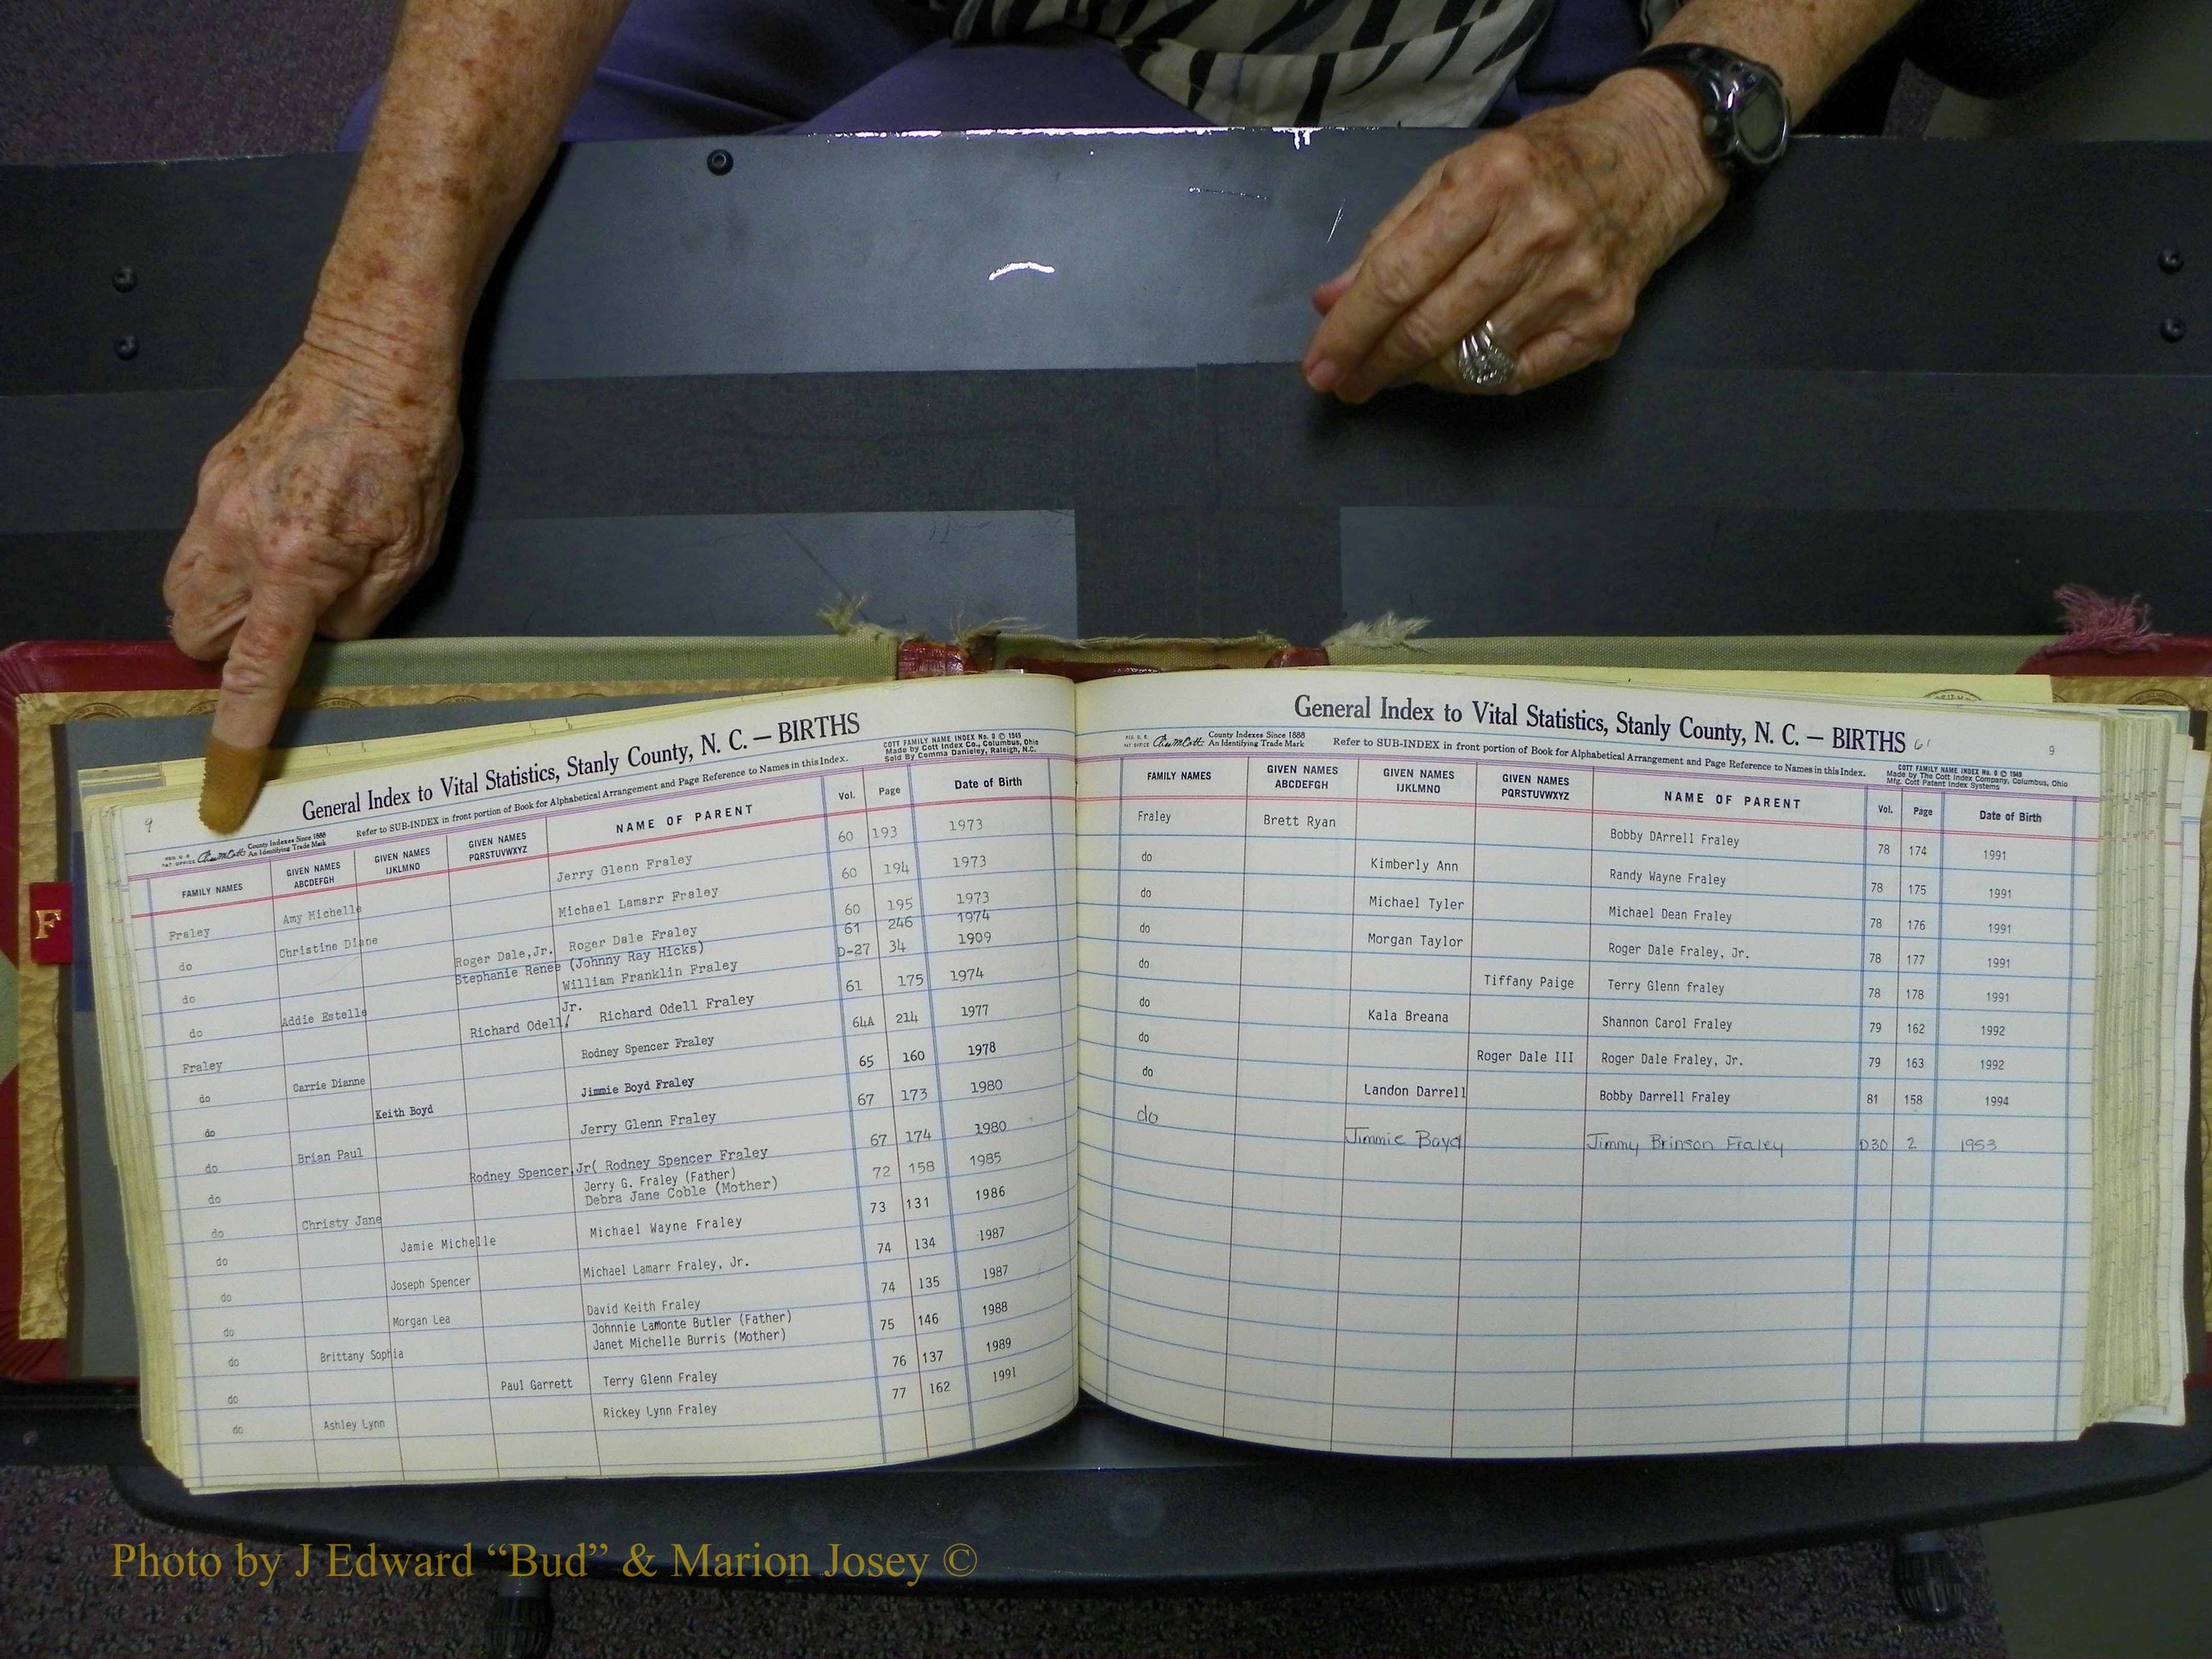 F
9
General Index to Vital Statistics, Stanly County, N. C. — BIRTHS
COTT FAMILY NAME INDEX No. 0 © 1949
Made by Cott Index Co., Columbus, Ohio
Sold By Comma Danieley, Raleigh, N.C.
REG. U. S. PAT OFFICE County Indexes Since 1888 An Identifying Trade Mark
Refer to SUB-INDEX in front portion of Book for Alphabetical Arrangement and Page Reference to Names in this Index.
FAMILY NAMES GIVEN NAMES ABCDEFGH GIVEN NAMES IJKLMNO GIVEN NAMES PQRSTUVWXYZ NAME OF PARENT Vol. Page Date of Birth
Fraley Amy Michelle Jerry Glenn Fraley 60 193 1973
do Christine Diane Michael Lamarr Fraley 60 194 1973
do Roger Dale, Jr. Roger Dale Fraley 60 195 1973
Stephanie Renee (Johnny Ray Hicks) 61 246 1974
do Addie Estelle William Franklin Fraley D-27 34 1909
Fraley Richard Odell/ Jr. Richard Odell Fraley 61 175 1974
do Carrie Dianne Rodney Spencer Fraley 64A 214 1977
do Keith Boyd Jimmie Boyd Fraley 65 160 1978
do Brian Paul Jerry Glenn Fraley 67 173 1980
do Rodney Spencer, Jr( Rodney Spencer Fraley 67 174 1980
do Christy Jane Jerry G. Fraley (Father) 72 158 1985
Debra Jane Coble (Mother)
do Jamie Michelle Michael Wayne Fraley 73 131 1986
do Joseph Spencer Michael Lamarr Fraley, Jr. 74 134 1987
do Morgan Lea David Keith Fraley 74 135 1987
do Brittany Sophia Johnnie LaMonte Butler (Father) 75 146 1988
Janet Michelle Burris (Mother)
do Paul Garrett Terry Glenn Fraley 76 137 1989
do Ashley Lynn Rickey Lynn Fraley 77 162 1991
General Index to Vital Statistics, Stanly County, N. C. — BIRTHS
9
REG. U. S. PAT OFFICE County Indexes Since 1888 An Identifying Trade Mark
Refer to SUB-INDEX in front portion of Book for Alphabetical Arrangement and Page Reference to Names in this Index.
COTT FAMILY NAME INDEX No. 0 © 1949
Made by The Cott Index Company, Columbus, Ohio
Mfg. Cott Patent Index Systems
FAMILY NAMES GIVEN NAMES ABCDEFGH GIVEN NAMES IJKLMNO GIVEN NAMES PQRSTUVWXYZ NAME OF PARENT Vol. Page Date of Birth
Fraley Brett Ryan Bobby DArrell Fraley 78 174 1991
do Kimberly Ann Randy Wayne Fraley 78 175 1991
do Michael Tyler Michael Dean Fraley 78 176 1991
do Morgan Taylor Roger Dale Fraley, Jr. 78 177 1991
do Tiffany Paige Terry Glenn fraley 78 178 1991
do Kala Breana Shannon Carol Fraley 79 162 1992
do Roger Dale III Roger Dale Fraley, Jr. 79 163 1992
do Landon Darrell Bobby Darrell Fraley 81 158 1994
do Jimmie Boyd Jimmy Brinson Fraley D30 2 1953
Photo by J Edward “Bud” & Marion Josey ©